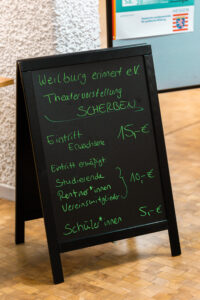 HESSEN
Weilburg erinnert e.V.
Theatervorstellung
SCHERBEN
Eintritt
Erwachsene 15,-€
Eintritt ermäßigt
Studierende
Rentner*innen
Vereinsmitglieder
10,-€
Schüler*innen 5,-€